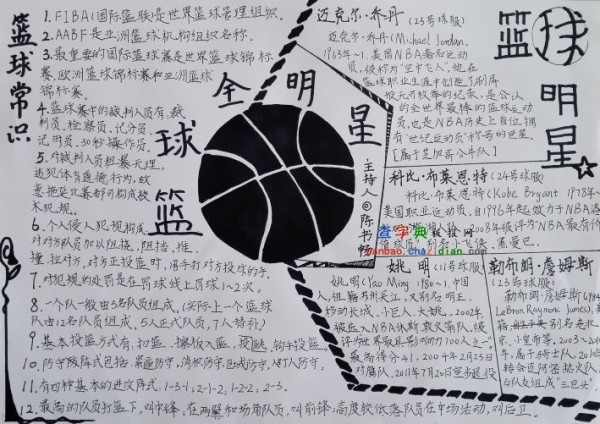 篮球常识
1.FIBA(国际篮联)是世界篮球管理组织。
2.AABF是亚洲篮球机构组织名称。
3.最重要的国际篮球赛是世界篮球锦标
赛,欧洲篮球锦标赛和亚洲篮球
锦标赛。
4.篮球赛中的裁判人员有:裁
判员,检察员,记分员,
记用员,30秒操作员。
5.对裁判人员粗暴无理,
违犯体育道德行为,故
意拖延比赛都可构成技
术犯规。
6.个人侵入犯规构成:
对对方队员加以阻挡,阻挡,推,
撞,拉对方,对方正投篮时,用手打对方投球的手。
7.对犯规的处罚是在罚球线上罚球1~2次。
8.一个队一般由5名队员组成。(实际上一个篮球
队由12名队员组成,5人正式队员,7人替补)
9.基本投篮方式有,扣篮,擦板入篮,勾手投篮。
10.防守阵阵式包括:紧逼防守,消极防守,区域防守,盯人防守。
11.有四种基本的进攻阵式:1-3-1;2-1-2,1-2-2;2-3。
12.最高的队员打篮下,叫中锋,在两翼和场角队员,叫前锋;高度较低落队员在中场活动,叫后卫。
篮球
全明星
主持人
陈书畅
篮球明星
迈克尔·乔丹(23号球服)
迈克尔·乔丹(Michael Jordan,
1963年~),美国NBA著名运动
员,被称为"空中飞人",他在
篮球职业生涯中创造了刷屏
般无可数率的记录,是公认
的全世界最棒的篮球运动
员,也是NBA历史上首位拥
有"世纪运动员"称号的巨星。
[属于芝加哥公牛队]
科比·布莱恩特(24号球服)
科比·布莱恩特(Kobe Bryant 1978年~
美国职业运动员,自1996年起效力于NBA洛
2008年被评为NBA最有价
值球员,别名小飞侠,黑曼巴。
查字典
板绘网
banbao.chazidian.com
姚明(11号球服)
姚明(Yao Ming 1980~),中国
人,祖籍苏州吴江,又别名明王,
移动长城,小巨人,大姚。2002年,
被选入NBA休斯敦火箭队,被
评为世界最具影响力100人之一"
最高得分41,2004年2月23日
对魔队,2011年7月20日宣布退役
勒布朗·詹姆斯
(23号球服)
勒布朗·詹姆斯(1984
LeBron Raymone James),美